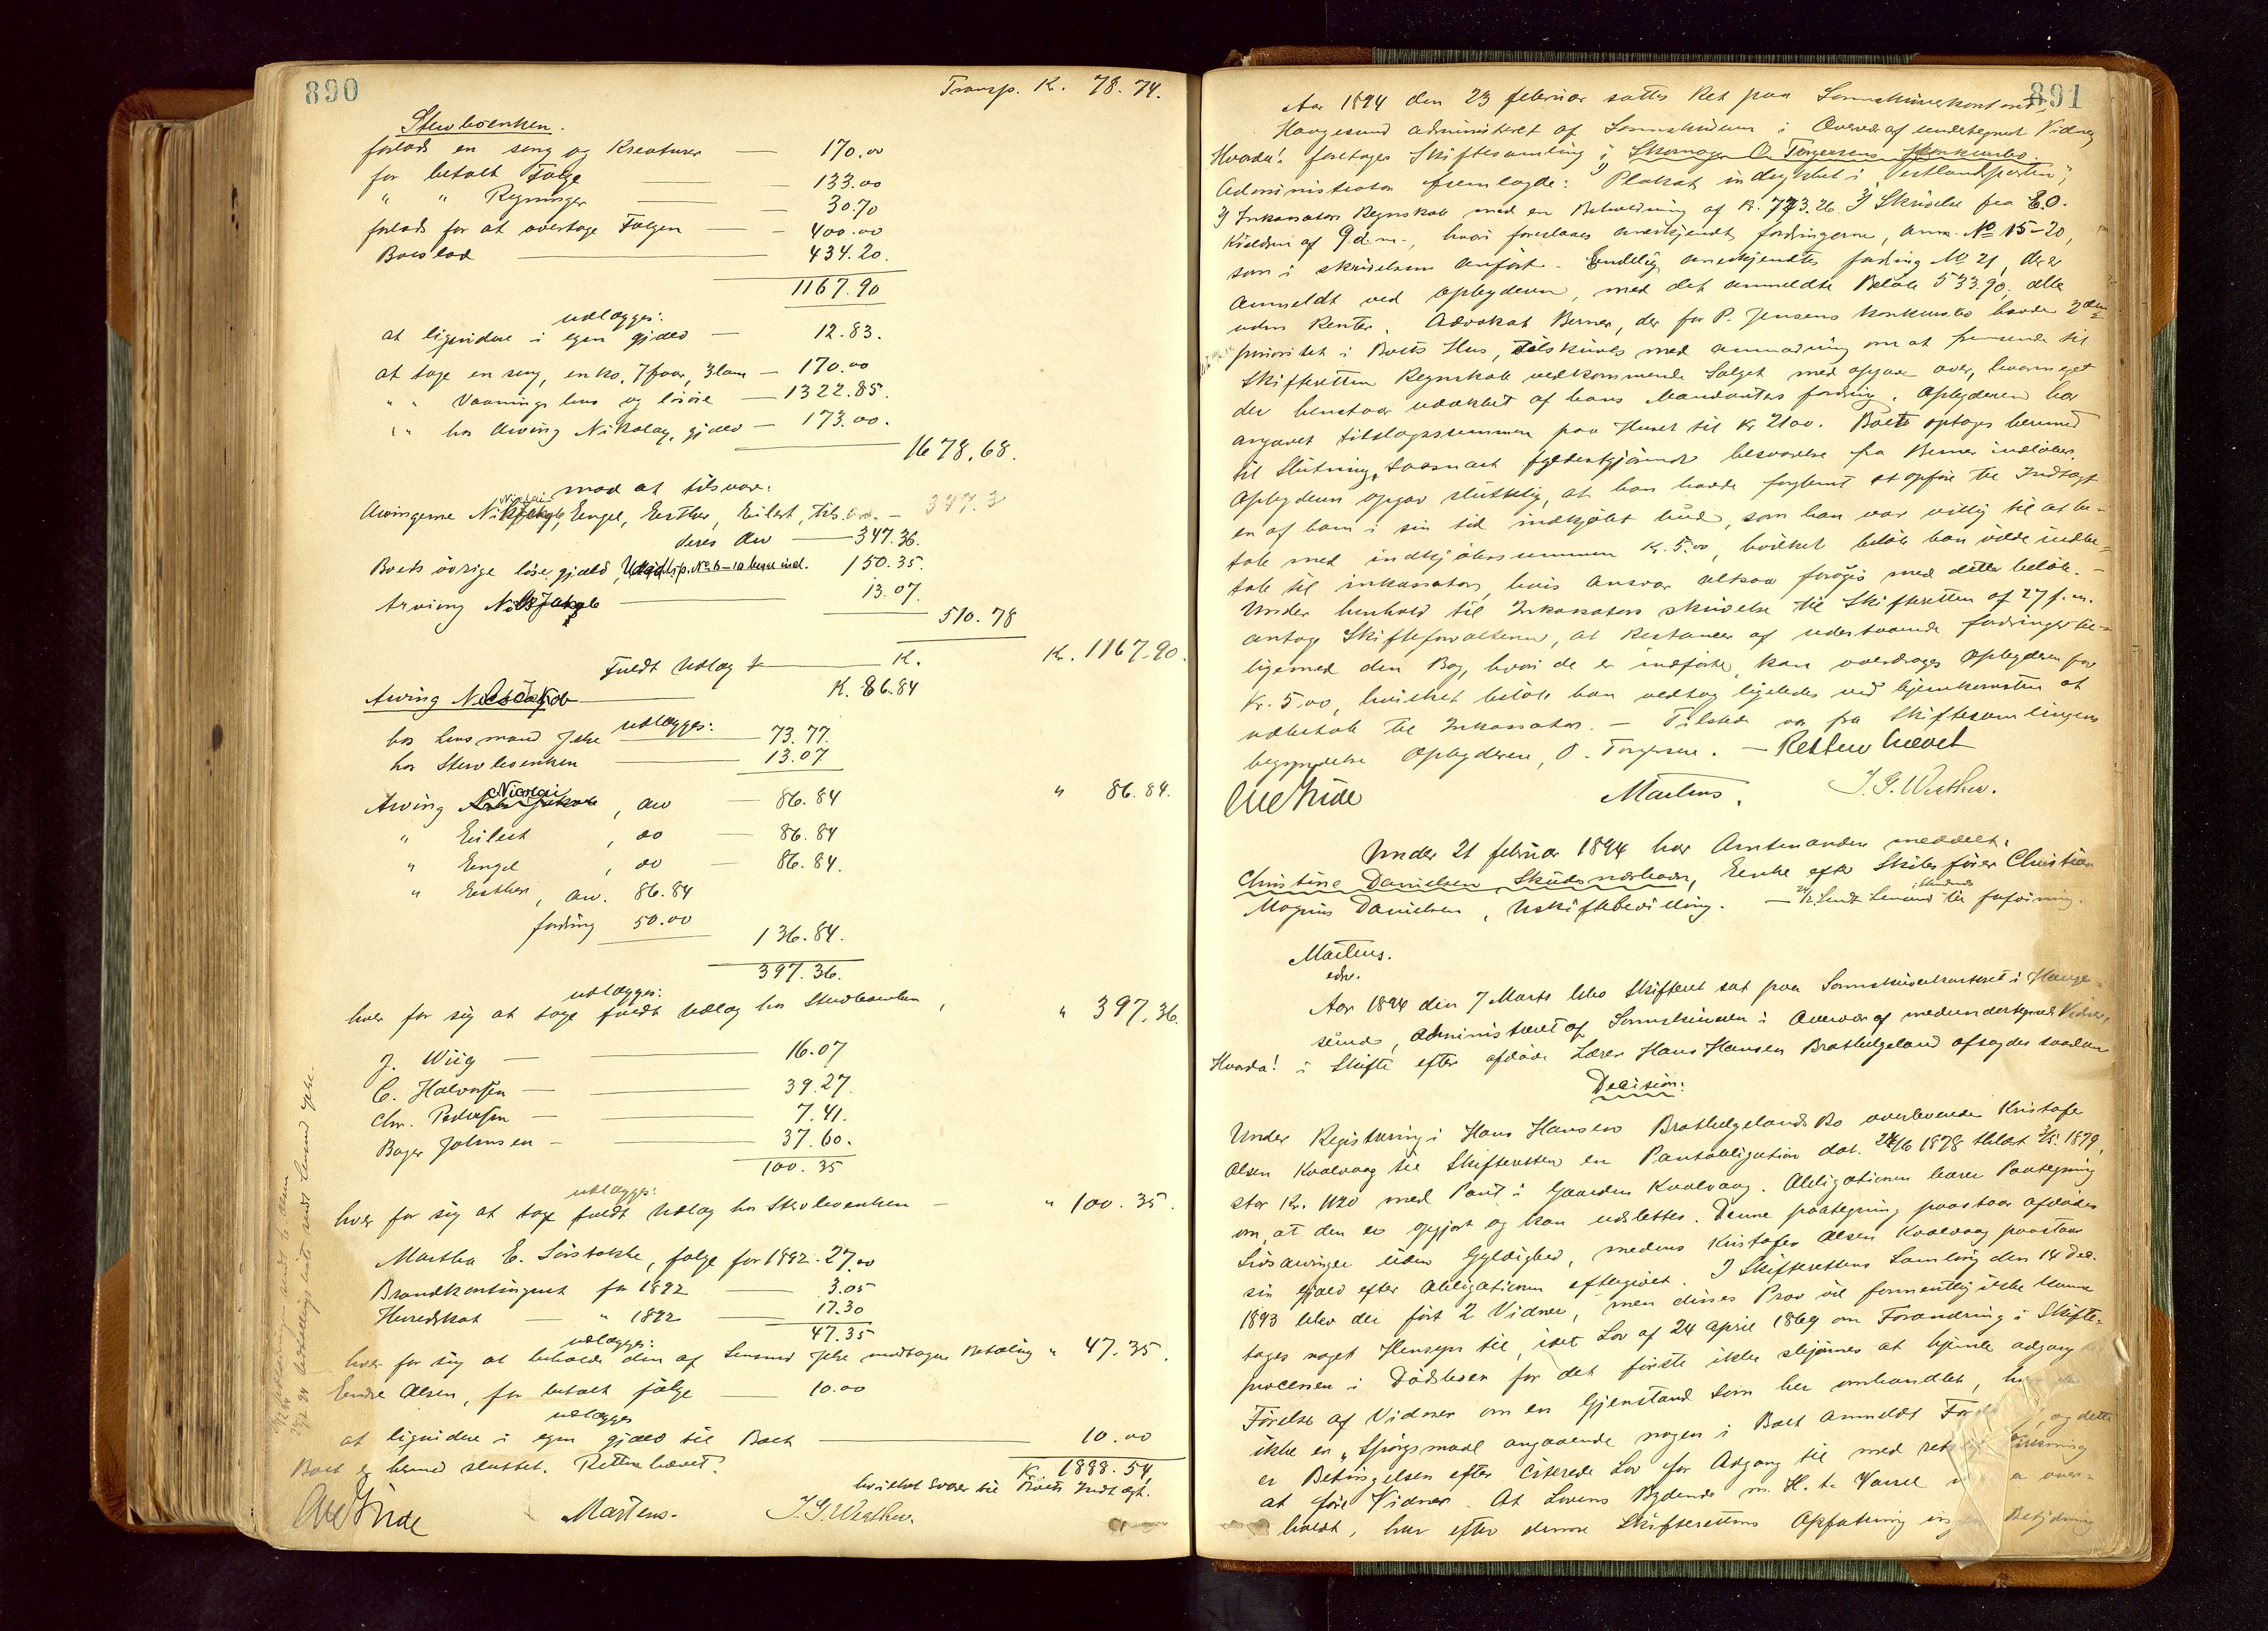 890
Transp. Kr. 78.74.
Stervboenken.
forlods en seng og Kreaturer — 170.00
for betalt Følge — 133.00
" " Regninger — 30.70
forlods for at overtage Følgen — 400.00
Boeslod — 434.20.
1167.90
udlægges:
at liqvidere i egen gjæld — 12.83.
at tage en seng, en ko, 7 faar, 3 lam — 170.00
" " Vaaningshus og løsøre — 1322.85.
" " hos Arving Nikolay, gjæld — 173.00.
1678.68.
mod at tilsvare:
Arvingerne Nicolai, Engel, Esther, Eilert, tils. — 347.3
deres Arv — 347.36.
Boets øvrige løse gjæld, No 6–10 incl. 150.35.
Arving Nils Jakob — 13.07.
510.78
Fuldt Udlæg — K. Kr. 1167.90.
Arving Nils Jakob — K. 86.84
udlægges:
hos Lensmand Jelse — 73.77.
hos Stervboenken — 13.07
Arving Nicolai, arv — 86.84 " 86.84.
" Eilert, do — 86.84
" Engel, do — 86.84.
" Esther, arv. 86.84
fordring 50.00
136.84.
397.36.
udlægges:
hver for sig at tage fuldt Udlæg hos Stervboenken, " 397.36.
J. Wiig — 16.07
C. Halvorsen — 39.27.
Chr. Pedersen — 7.41.
Bager Johnsen — 37.60.
100.35
udlægges:
hver for sig at tage fuldt Udlæg hos Stervboenken — " 100.35.
Martha E. Sørstokke, følge for 1892. 27.00
Brandkontingent for 1892 — 3.05
Herredskat — " 1892 — 17.30
47.35
udlægges:
hver for sig at beholde den af Lensmd Jelse modtagne Betaling " 47.35.
Endre Olsen, for betalt følge — 10.00
udlægges
at liqvidere i egen gjæld til Boet — 10.00
Boet er hermed sluttet. Retten hævet. Kr. 1888.54,
hvilket svarer til Boets Indtægt.
Martens. J. G. Westher.
891
Aar 1894 den 23 februar sattes Ret paa Sorenskriverkontoret i
Haugesund administreret af Sorenskriveren i Overvær af undertegnede Vidner
Hvorda! foretoges Skiftesamling i Skomager O. Torgersens Konkursbo.
Administrator fremlagde: 1) Plakat indrykket i "Vestlandsposten",
2) Inkassators Regnskab med en Beholdning af Kr. 773.26. 3) Skrivelse fra E.O.
Kieldsen af 9 d.m., hvori foreslaaes anerkjendt fordringerne, anm. No 15–20,
som i skrivelsen anført. Endelig anerkjendtes fordring No 21, der er
anmeldt ved Opbyderen, med det anmeldte Beløb 533.90. alle
uden Renter. Advokat Berner, der for P. Jensens Konkursbo havde 2den
prioritet i Boets Hus, tilskrives med anmodning om at fremsende til
Skifteretten Regnskab vedkommende Salget med opgave over, hvormeget
der henstaar udækket af hans Mandanters fordring. Opbyderen har
angivet tilslagssummen paa Huset til Kr. 2100. Boet optages hermed
til Slutning, saasnart fyldestgjørende besvarelse fra Berner indløber.
Opbyderen opgav sluttelig, at han havde forglemt at opføre til Indtægt
en af ham i sin tid indkjøbt hud, som han var villig til at be-
tale med indkjøbssummen Kr. 5.00, hvilket beløb han vilde indbe-
tale til inkassator, hvis ansvar altsaa forøges med dette beløb. —
Under henhold til Inkassators skrivelse til Skifteretten af 27 f.m.
antog Skifteforvalteren, at Restancer af udestaaende fordringer til-
ligemed den Bog, hvori de er indførte, kan overdrages Opbyderen for
Kr. 5.00, hvilket beløb han vedtog ligeledes ved hjemkomsten at
udbetale til Inkassator. — Tilstede var fra Skiftesamlingens
begyndelse Opbyderen, O. Torgersen. — Retten hævet
Martens. J. G. Westher.
Under 21 februar 1894 har Amtmanden meddelt:
Christine Danielsen Skudesneshavn, Enke efter Skibsfører Christian
Magnus Danielsen, Uskiftebevilling. — Sendt Lensmd i Skudesnes til forføining.
Martens.
edsv.
Aar 1894 den 7 Marts blev Skifteret sat paa Sorenskriverkontoret i Hauge-
sund, administreret af Sorenskriveren i Overvær af medundertegnede Vidner,
Hvorda! i Skifte efter afdøde Lærer Hans Hansen Brathelgeland afsagdes saadan
Decision:
Under Registrering i Hans Hansen Brathelgelands Bo overleverede Kristofer
Olsen Kvalvaag til Skifteretten en Pantobligation dat. 24/6 1878 thlæst 3/5 1879,
stor Kr. 1120 med Pant i Gaarden Kvalvaag. Obligationen bærer Paategning
om, at den er opgjort og kan udslettes. Denne paategning paastaar afdødes
Livsarvinger uden Gyldighed, medens Kristofer Olsen Kvalvaag paastaar
sin gjæld efter Obligationen eftergivet. I Skifterettens Samling den 14 Dec.
1893 blev der ført 2 Vidner, men disses Prov vil formentlig ikke kunne
tages noget Hensyn til, idet Lov af 24 April 1869 om Forandring i Skifte-
processen i Dødsboer for det første ikke skjønnes at hjemle adgang
Førelse af Vidner om en Gjenstand som her omhandlet,
ikke er "Spørgsmaal angaaende nogen i Boet anmeldt , og dette
er Betingelsen efter citerede Lov for Adgang til med Virkning
at føre Vidner. At Lovens Bydende m. H. t. Varsel er over-
holdt, har efter denne Skifterettens Opfatning Betydning